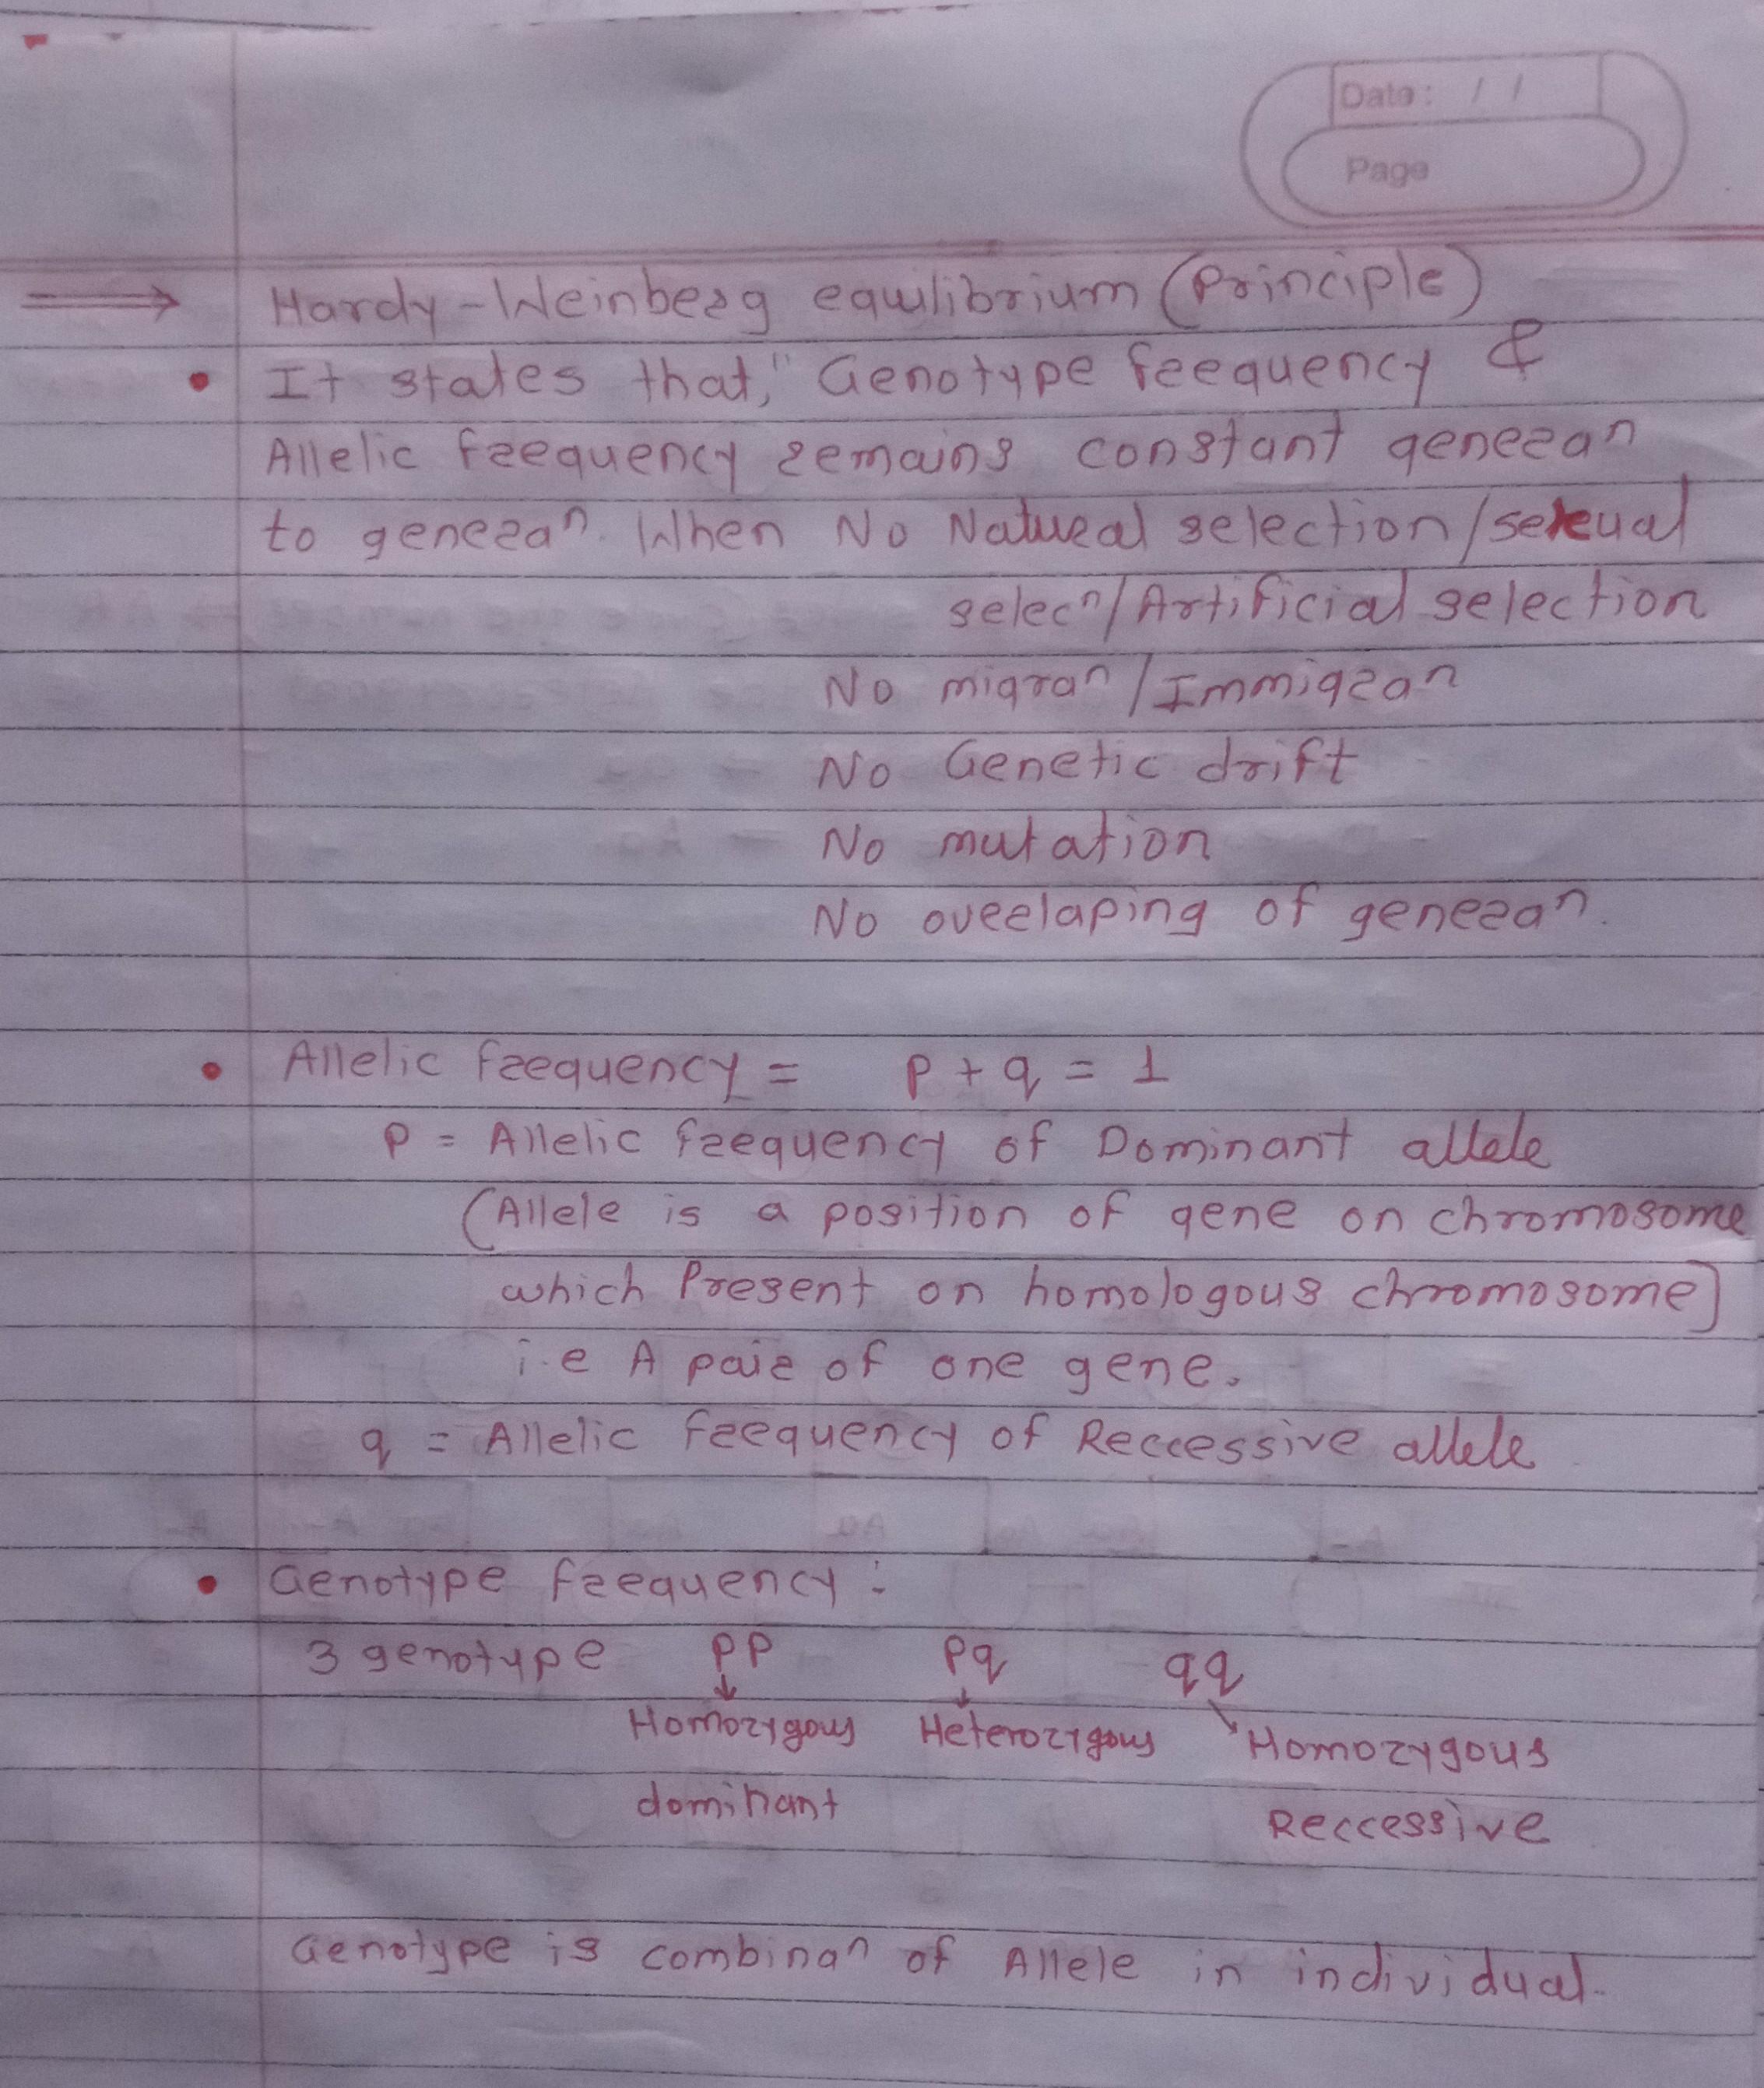 Date: / /
Page
⟹ Hardy-Weinberg equilibrium (Principle)
• It states that, " Genotype frequency &
Allelic frequency remains constant generaⁿ
to generaⁿ. When No Natural selection/sexual
selecⁿ/Artificial selection
No migraⁿ/Immigraⁿ
No Genetic drift
No mutation
No overlaping of generaⁿ.
• Allelic frequency = p + q = 1
p = Allelic frequency of Dominant allele
(Allele is a position of gene on chromosome
which Present on homologous chromosome)
i.e A pair of one gene.
q = Allelic frequency of Reccessive allele
• Genotype frequency :
3 genotype PP Pq qq
↓ ↓ ↘
Homozygous Heterozygous Homozygous
dominant Reccessive
Genotype is combinaⁿ of Allele in individual.